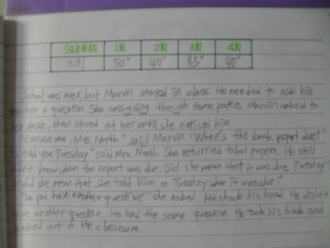 1회 2회 3회 4회
50" 47" 45" 40"
School was over, but Marvin stayed in class. He needed to ask his
teacher a question. She was going through some papers. Marvin walked to
her desk, then stared at her until she noticed him.
"Excuse me, Mrs. North." said Marvin "When's the book report due?"
told you Tuesday." said Mrs. North. She returned to her papers. He still
didn't know when the report was due. Did she mean that it was due Tuesday
did she mean that she told him on Tuesday when it was due?
"Do you have another question?" she asked. He shook his head. He didn't
have another question. He had the same question. He took his book and
walked out of the classroom.